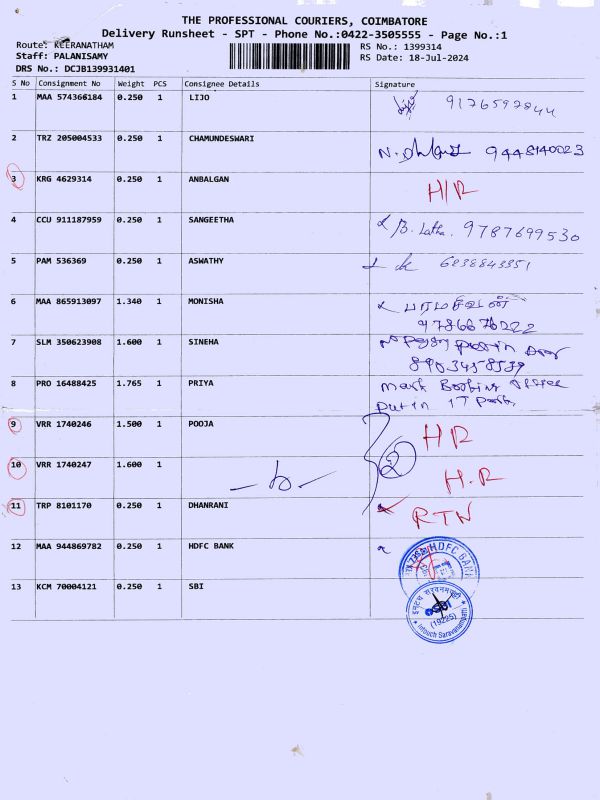 THE PROFESSIONAL COURIERS, COIMBATORE
Delivery Runsheet - SPT - Phone No.:0422-3505555 - Page No.:1
Route: KEERANATHAM
Staff: PALANISAMY
DRS No.: DCJB139931401
RS No.: 1399314
RS Date: 18-Jul-2024
S No Consignment No Weight PCS Consignee Details Signature
1 MAA 574366184 0.250 1 LIJO 9176597844
2 TRZ 205004533 0.250 1 CHAMUNDESWARI N. 9448140023
3 KRG 4629314 0.250 1 ANBALGAN H/R
4 CCU 911187959 0.250 1 SANGEETHA B. Latha. 9787699530
5 PAM 536369 0.250 1 ASWATHY 6838843351
6 MAA 865913097 1.340 1 MONISHA பரமசிவன்
9786676222
7 SLM 350623908 1.600 1 SINEHA
8903458539
8 PRO 16488425 1.765 1 PRIYA Mark Booking Office
Put in IT Park.
9 VRR 1740246 1.500 1 POOJA H R
10 VRR 1740247 1.600 1 H.R
11 TRP 8101170 0.250 1 DHANRANI RTN
12 MAA 944869782 0.250 1 HDFC BANK HDFC BANK
13 KCM 70004121 0.250 1 SBI SBI
(19225)
Intouch Saravanampatti